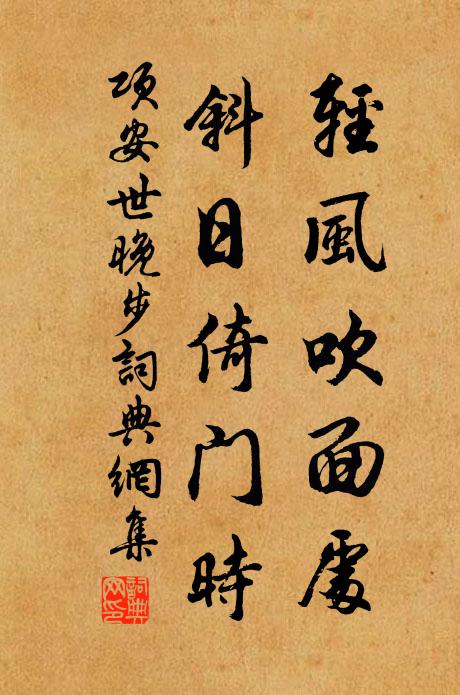 輕風吹面處
斜日倚门時
項安世晚步詞典網集
詞典
网印